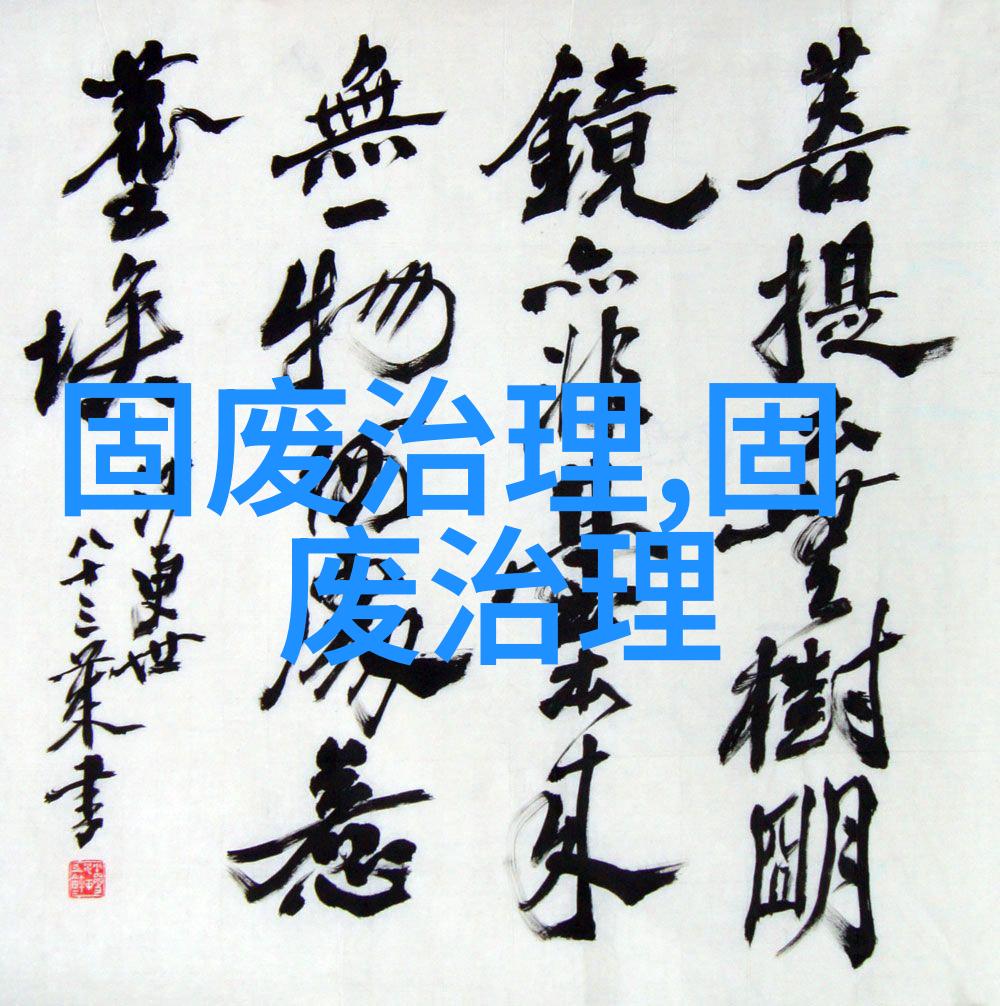 固废治理,固
废治理
菩提本無樹明
鏡亦非臺本来
無一物何處惹
塵埃
八十三書